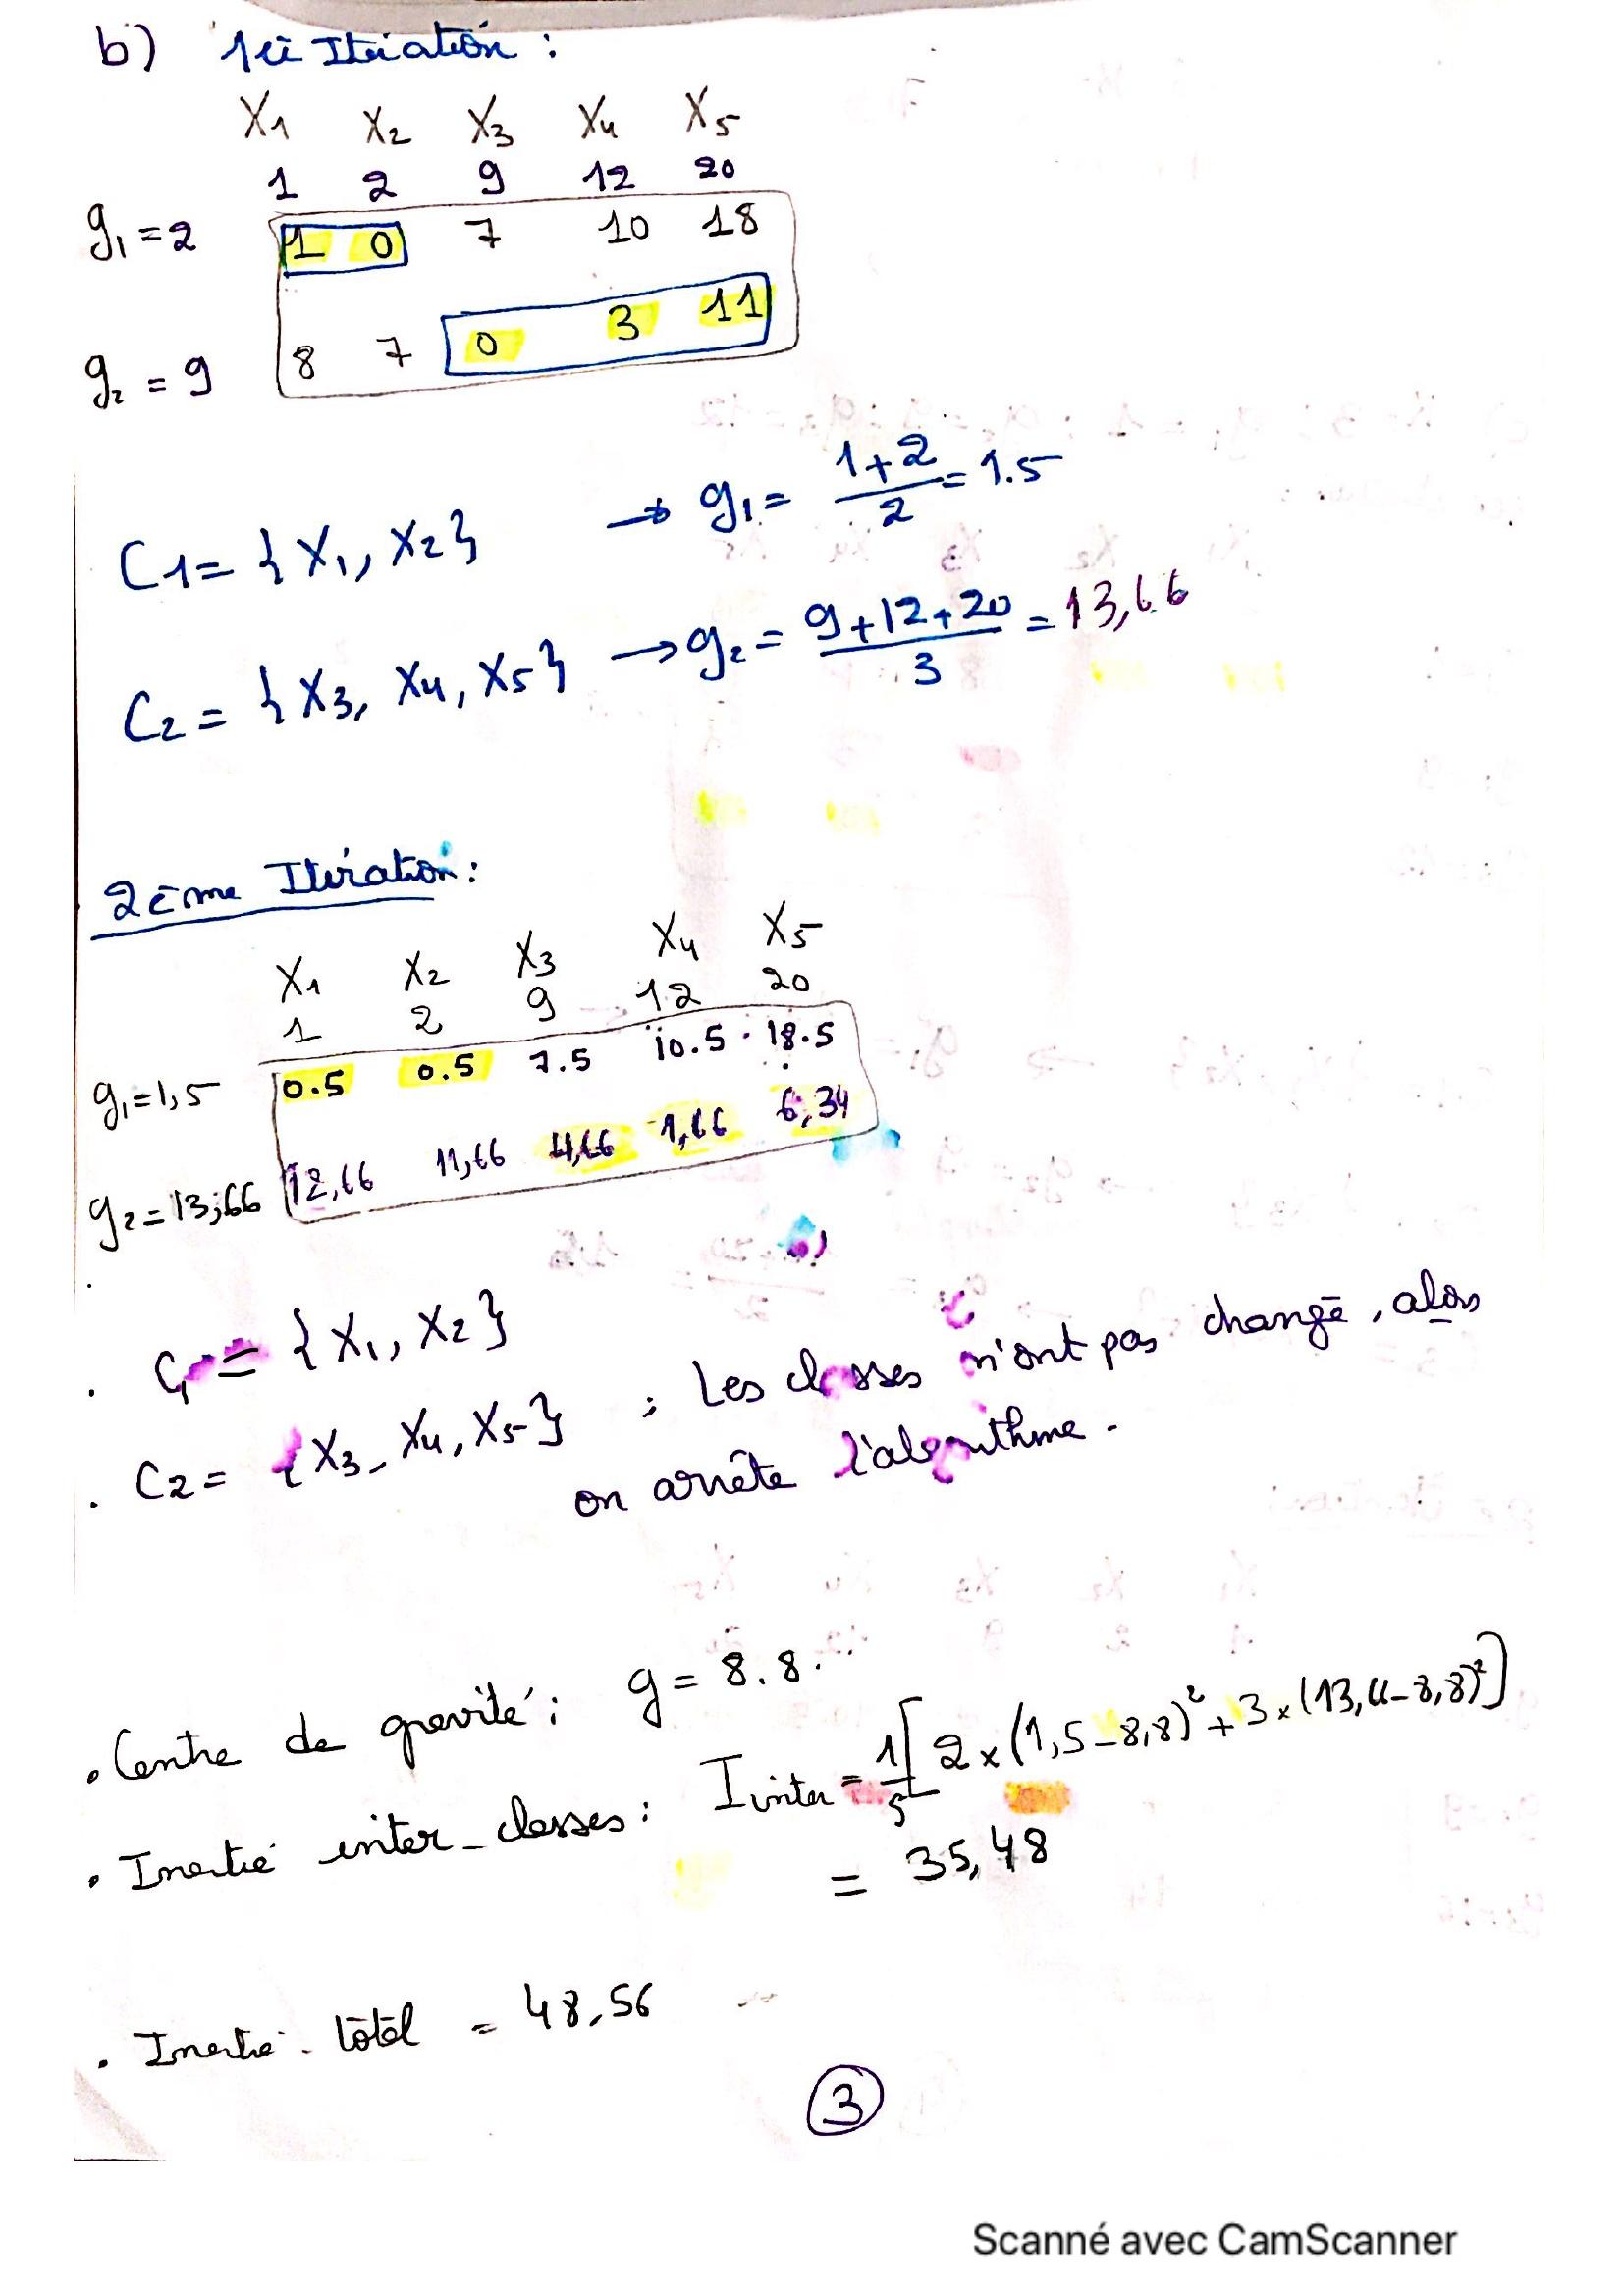 b) 1ère Itération :
X1 X2 X3 X4 X5
1 2 9 12 20
g1 = 2 1 0 7 10 18
g2 = 9 8 7 0 3 11
C1 = { X1, X2 } → g1 = (1+2)/2 = 1.5
C2 = { X3, X4, X5 } → g2 = (9+12+20)/3 = 13,66
2ème Itération :
X1 X2 X3 X4 X5
1 2 9 12 20
g1 = 1,5 0.5 0.5 7.5 10.5 18.5
g2 = 13,66 12,66 11,66 4,66 1,66 6,34
C1 = { X1, X2 }
C2 = { X3, X4, X5 } ; Les classes n'ont pas changé, alors
on arrête l'algorithme.
. Centre de gravité : g = 8.8
. Inertie inter-classes : Iinter = 1/5 [ 2 x (1,5 - 8,8)² + 3 x (13,66 - 8,8)² ]
= 35,48
. Inertie total = 48,56
3
Scanné avec CamScanner